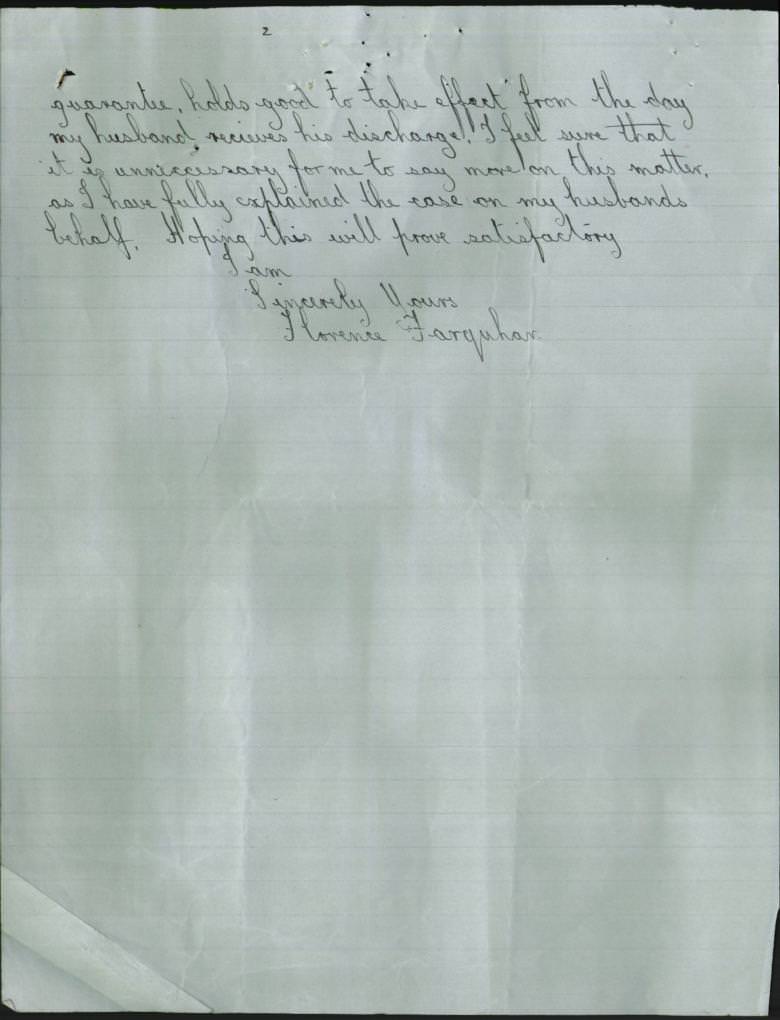 2
guarantee, holds good to take effect from the day
my husband recieves his discharge. I feel sure that
it is unneccessary for me to say more on this matter,
as I have fully explained the case on my husbands
behalf. Hoping this will prove satisfactory
I am
Sincerely Yours
Florence Farquhar.